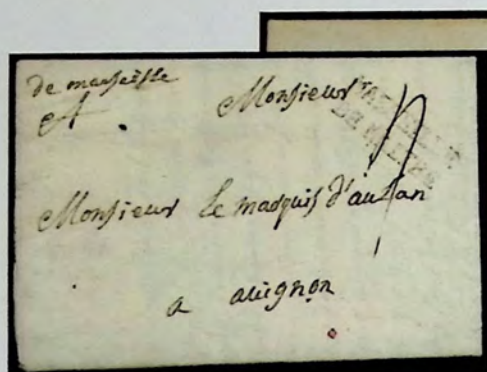 de marseille
A Monsieur
Monsieur Le marquis d'aulan
a avignon